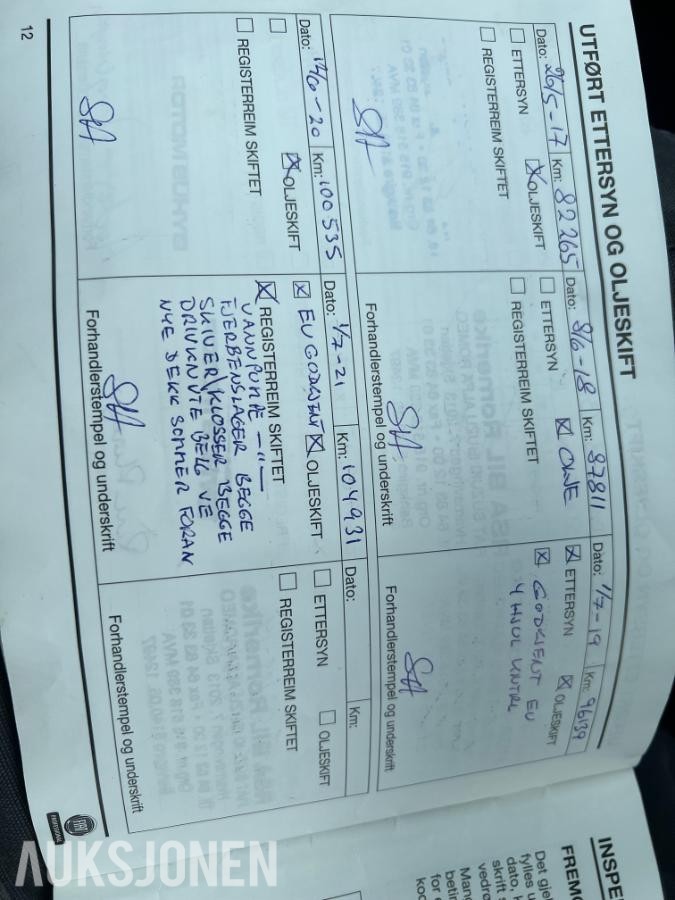 UTFØRT ETTERSYN OG OLJESKIFT
Dato: 26/5-17 Km: 82265
ETTERSYN OLJESKIFT
REGISTERREIM SKIFTET
Forhandlerstempel og underskrift
Dato: 8/6-18 Km: 87811
ETTERSYN OLJE
REGISTERREIM SKIFTET
Forhandlerstempel og underskrift
Dato: 1/7-19 Km: 96139
ETTERSYN OLJESKIFT
GODKJENT EU
4 HJUL KNTRL
Dato: 12/6-20 Km: 100535
OLJESKIFT
REGISTERREIM SKIFTET
Forhandlerstempel og underskrift
Dato: 1/7-21 Km: 104931
EU GODKJENT OLJESKIFT
REGISTERREIM SKIFTET
VANNPUMPE —"—
FJERBENSLAGER BEGGE
SKIVER/KLOSSER BEGGE
DRIVKNUTE BELG VE
NYE DEKK SOMMER FORAN
Forhandlerstempel og underskrift
Dato: Km:
ETTERSYN OLJESKIFT
REGISTERREIM SKIFTET
Forhandlerstempel og underskrift
12
FIAT
PROFESSIONAL
INSPE
FREMO
Det gjel
fylles u
dato, k
skrift s
vedrø
Mang
betin
for
koc
AUKSJONEN